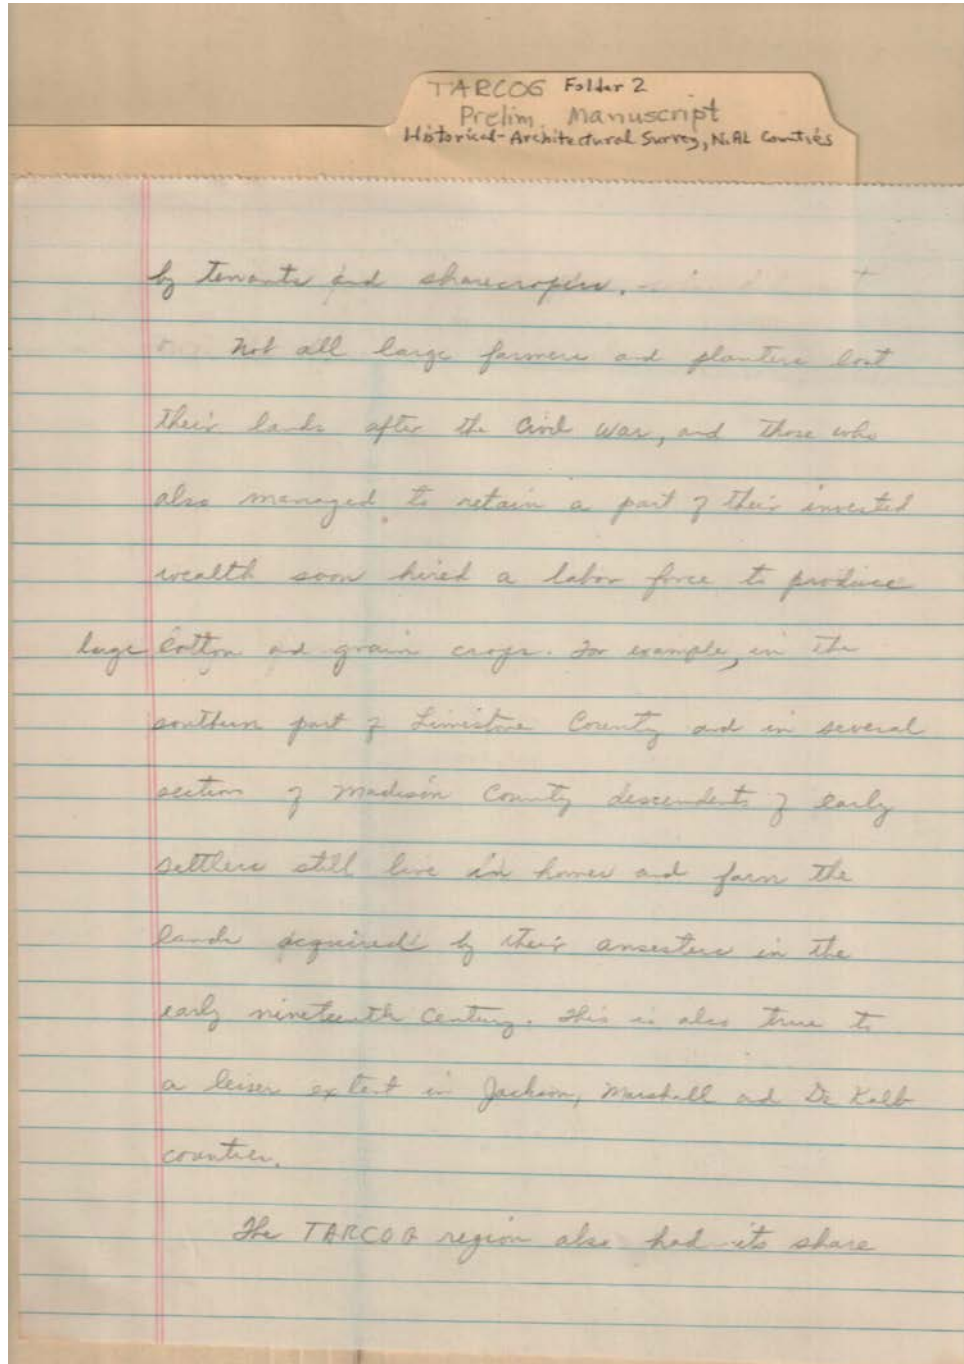 TARCOG Folder 2
Prelim. Manuscript
Historical-Architectural Survey, N.AL Counties
by tenants and sharecropers.
Not all large farmers and planters lost
their lands after the Civil War, and those who
also managed to retain a part of their invested
wealth soon hired a labor force to produce
large cotton and grain crops. For example, in the
southern part of Limestone County and in several
section of Madison County descendents of early
settlers still live in homes and farm the
lands acquired by their ansesters in the
early nineteenth century. This is also true to
a leiser extent in Jackson, Marshall and De Kalb
counties.
The TARCOG region also had its share